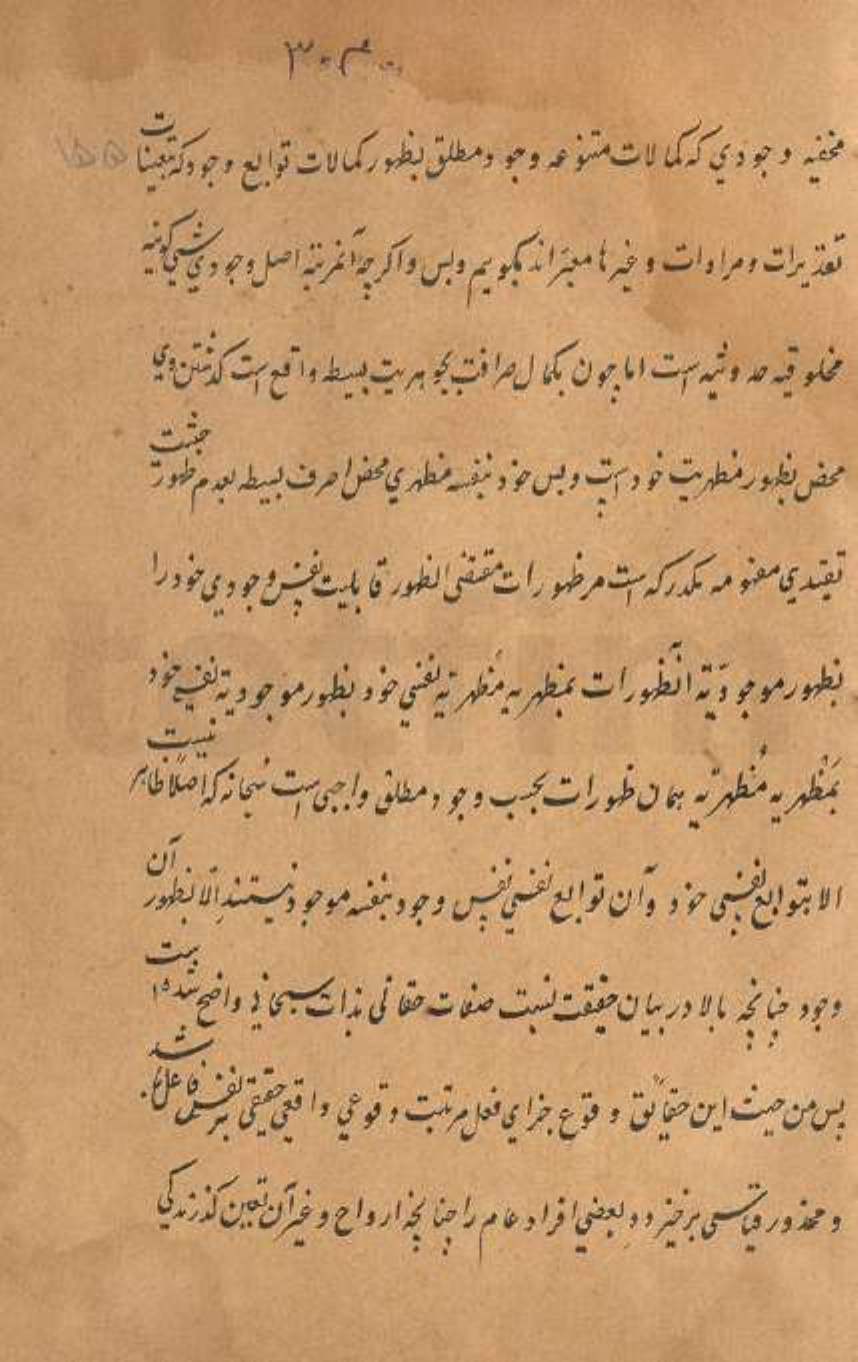 ۳۰۴
۱۵۵
مخفیه وجودی که کمالات متنوعه وجود مطلق بظهور کمالات توابع وجود که تعینات
تقدیرات و مرادات و غیرها معبراند بگوییم و بس و اگرچه آنمرتبه اصل وجودی شیی کونیه
مخلوقیه حدوثیه است اما چون بکمال صرافت بجوهریت بسیط واقع است
محض بظهور مظهریت خود است و بس خود بنفسه مظهری محض صرف بسیطه بعدم ظهور حیثیت
تقیدی مفهومه مدرکه است مر ظهورات مقتضی الظهور قابلیت نفس وجودی خود را
بظهور موجودیّة آنظهورات بمظهریه مُظهریّه نفسی خود بظهور موجودیة نفسی خود
بمَظْهریه مُظهریّه همان ظهورات بحسب وجود مطلق واجبی است سبحانه که اصلاً ظاهر نیست
الا بتوابع نفسی خود و آن توابع نفسی نفس وجود بنفسه موجود نیستند الّا بظهور آن
وجود چنانچه بالا در بیان حقیقت نسبت صفات حقانی بذات سبحانی واضح شده است
پس من حیث این حقایق وقوع جزای فعل مرتبت وقوعی واقعی حقیقی بر نفس فاعل شد
و محذور قیاسی برخیزد و بعضی افراد عام را چنانچه ارواح و غیر آن تعین کذرندگی